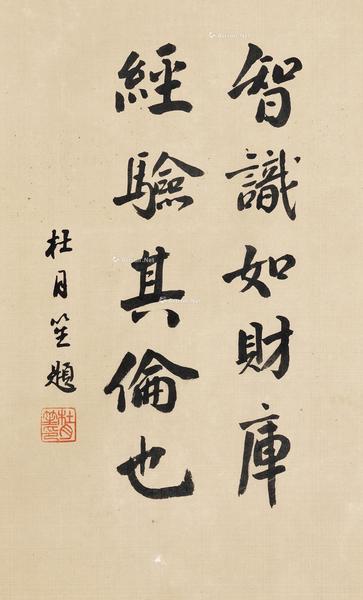 智識如財庫
經驗其倫也
杜月笙題